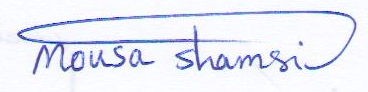 Mousa Shamsi